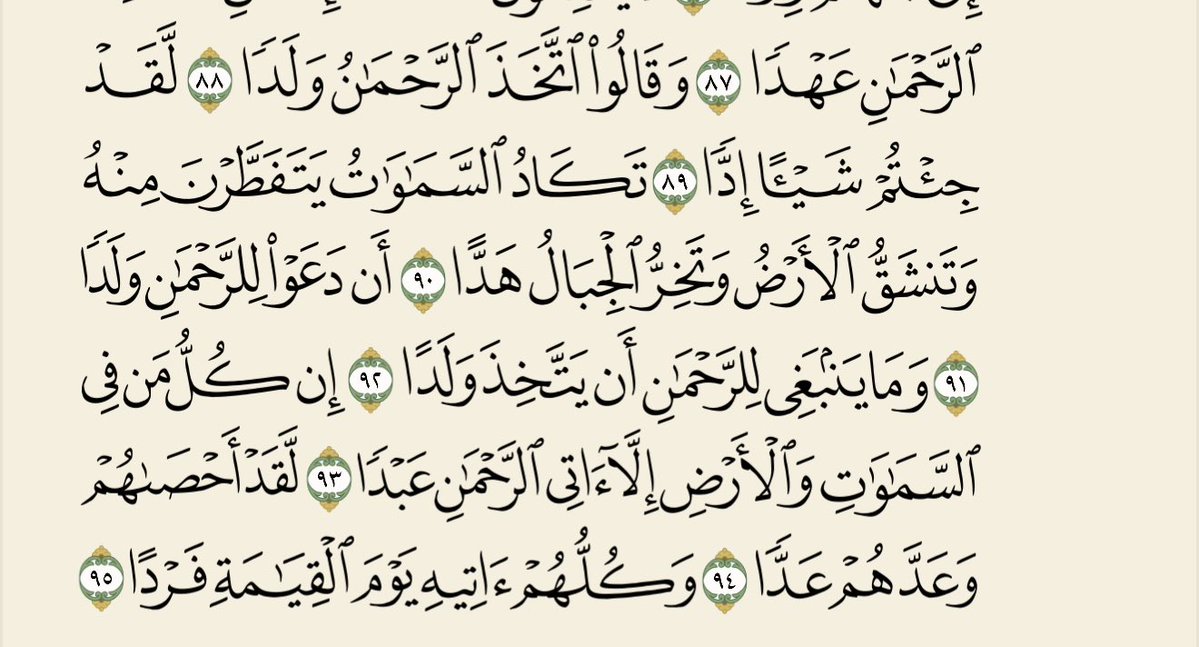 ٱلرَّحۡمَٰنِ عَهۡدٗا ٨٧ وَقَالُواْ ٱتَّخَذَ ٱلرَّحۡمَٰنُ وَلَدٗا ٨٨ لَّقَدۡ
جِئۡتُمۡ شَيۡـًٔا إِدّٗا ٨٩ تَكَادُ ٱلسَّمَٰوَٰتُ يَتَفَطَّرۡنَ مِنۡهُ
وَتَنشَقُّ ٱلۡأَرۡضُ وَتَخِرُّ ٱلۡجِبَالُ هَدًّا ٩٠ أَن دَعَوۡاْ لِلرَّحۡمَٰنِ وَلَدٗا
٩١ وَمَا يَنۢبَغِي لِلرَّحۡمَٰنِ أَن يَتَّخِذَ وَلَدًا ٩٢ إِن كُلُّ مَن فِي
ٱلسَّمَٰوَٰتِ وَٱلۡأَرۡضِ إِلَّآ ءَاتِي ٱلرَّحۡمَٰنِ عَبۡدٗا ٩٣ لَّقَدۡ أَحۡصَىٰهُمۡ
وَعَدَّهُمۡ عَدّٗا ٩٤ وَكُلُّهُمۡ ءَاتِيهِ يَوۡمَ ٱلۡقِيَٰمَةِ فَرۡدًا ٩٥